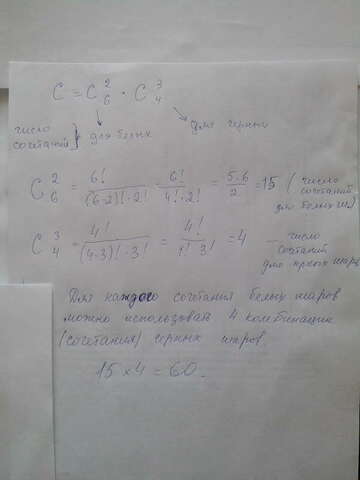 C = C₆² · C₄³
число сочетаний } для белых
для черных
C₆² = 6! / (6-2)! · 2! = 6! / 4! · 2! = 5·6 / 2 = 15 ( число сочетаний для белых ш.)
C₄³ = 4! / (4-3)! · 3! = 4! / 1! · 3! = 4 — число сочетаний для черных шаров
Для каждого сочетания белых шаров
можно использовать 4 комбинации
(сочетания) черных шаров
15 x 4 = 60.